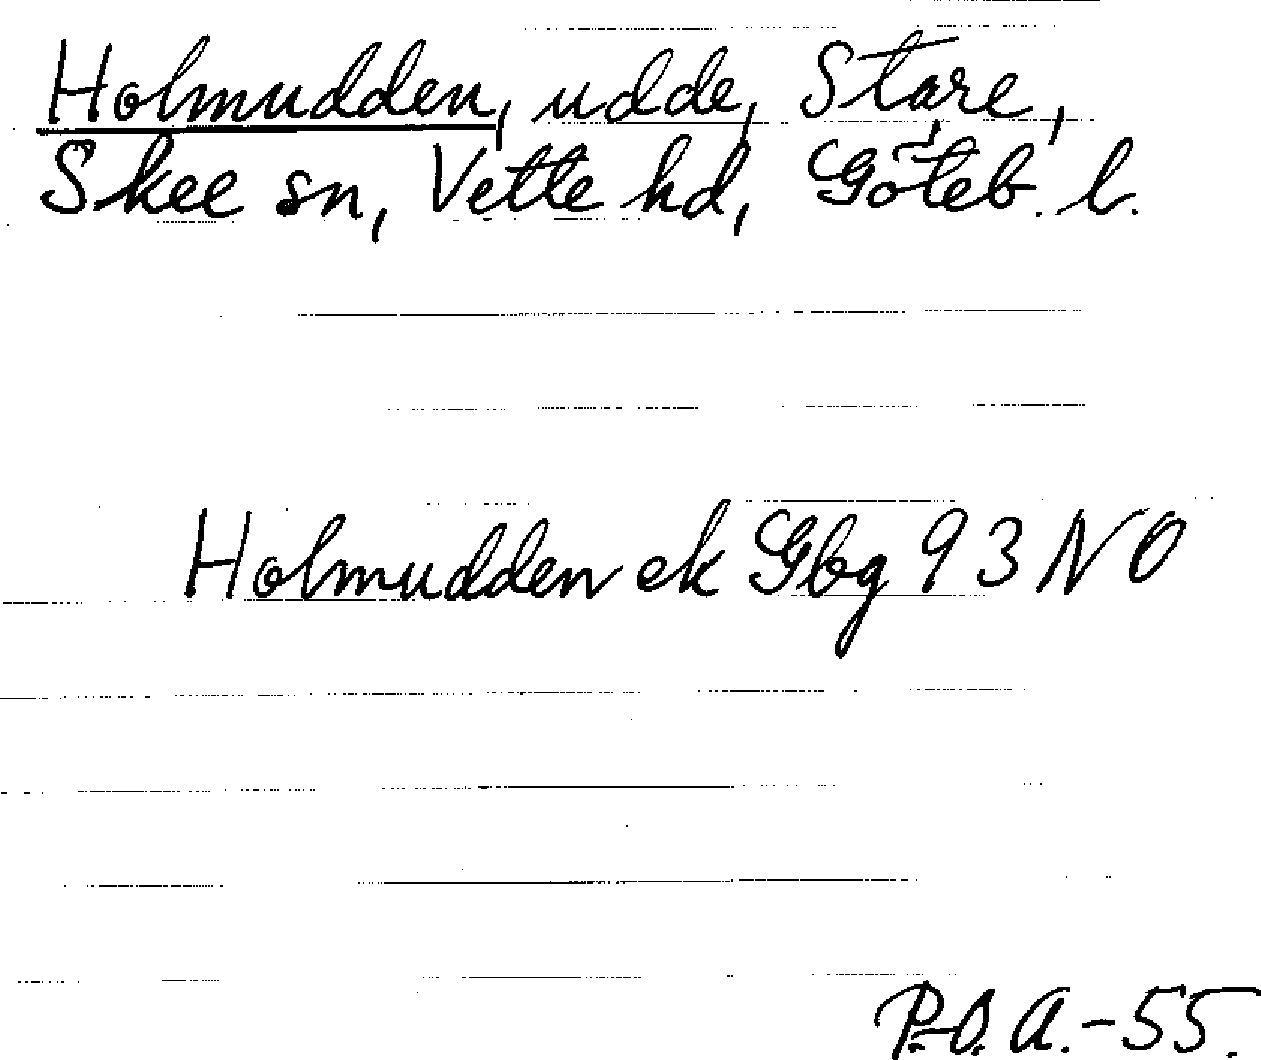 Holmudden, udde, Stare,
Skee sn, Vette hd, Göteb. l.
Holmudden ek Gbg 93 NO
P.O.A.-55.